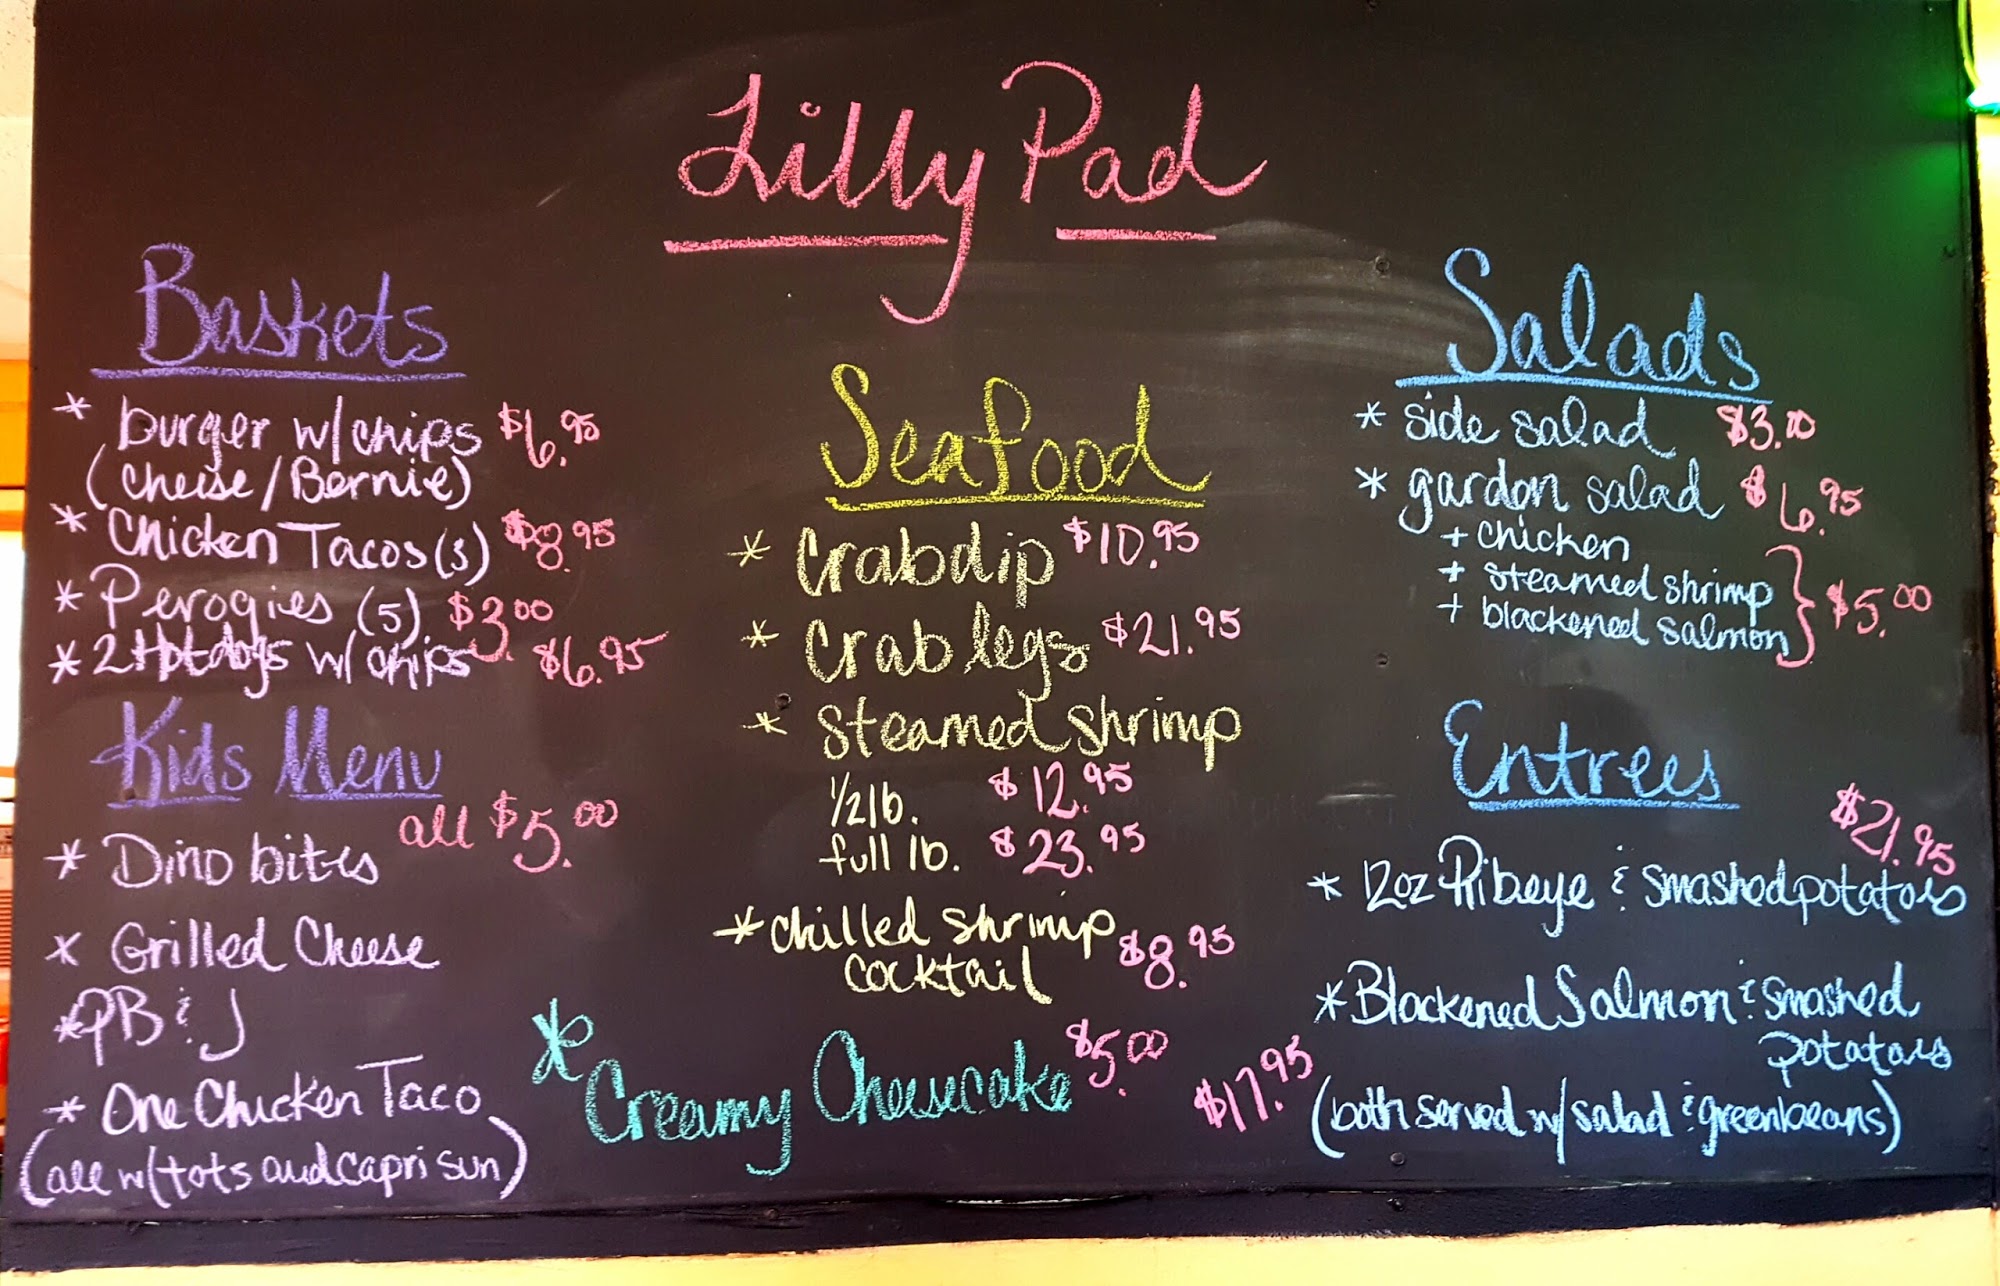 Lilly Pad
Baskets
* burger w/chips $6.95
(Cheese/Bernie)
* Chicken Tacos (3) $8.95
* Perogies (5) $3.00
* 2 Hotdogs w/chips $6.95
Kids Menu
all $5.00
* Dino bites
* Grilled Cheese
* PB & J
* One Chicken Taco
(all w/tots and capri sun)
Seafood
* Crabdip $10.95
* Crab legs $21.95
* steamed shrimp
1/2 lb. $12.95
full lb. $23.95
* chilled shrimp
cocktail $8.95
* Creamy Cheesecake $5.00
Salads
* side salad $3.00
* gardon salad $6.95
+ chicken
+ steamed shrimp
+ blackened salmon } $5.00
Entrees
$21.95
* 12oz Ribeye & smashed potatoes
* Blackened Salmon & smashed
potatoes
$17.95
(both served w/ salad & greenbeans)